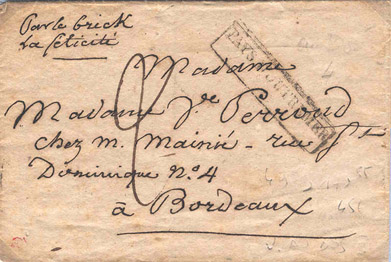 Par le brick
La félicité
PAYS D'OUTREMER
Madame
Madame Ve Perroud
chez m. Mainié - rue St
Dominique n°. 4
à Bordeaux